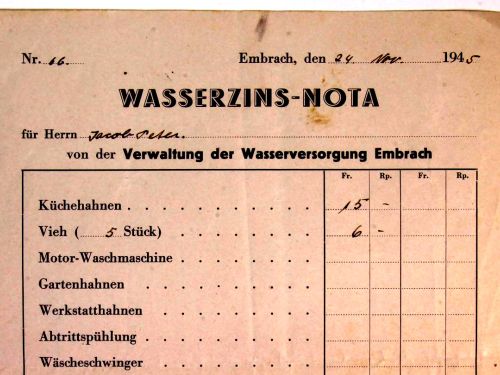 Nr. 66. Embrach, den 24 Nov. 1945
WASSERZINS-NOTA
für Herrn Jacob Peter.
von der Verwaltung der Wasserversorgung Embrach
Fr. Rp. Fr. Rp.
Küchehahnen . . . . . . . . 15 -
Vieh ( 5 Stück) . . . . . . 6 -
Motor-Waschmaschine . . . . .
Gartenhahnen . . . . . . .
Werkstatthahnen . . . . . .
Abtrittspühlung . . . . . . .
Wäscheschwinger . . . . . .